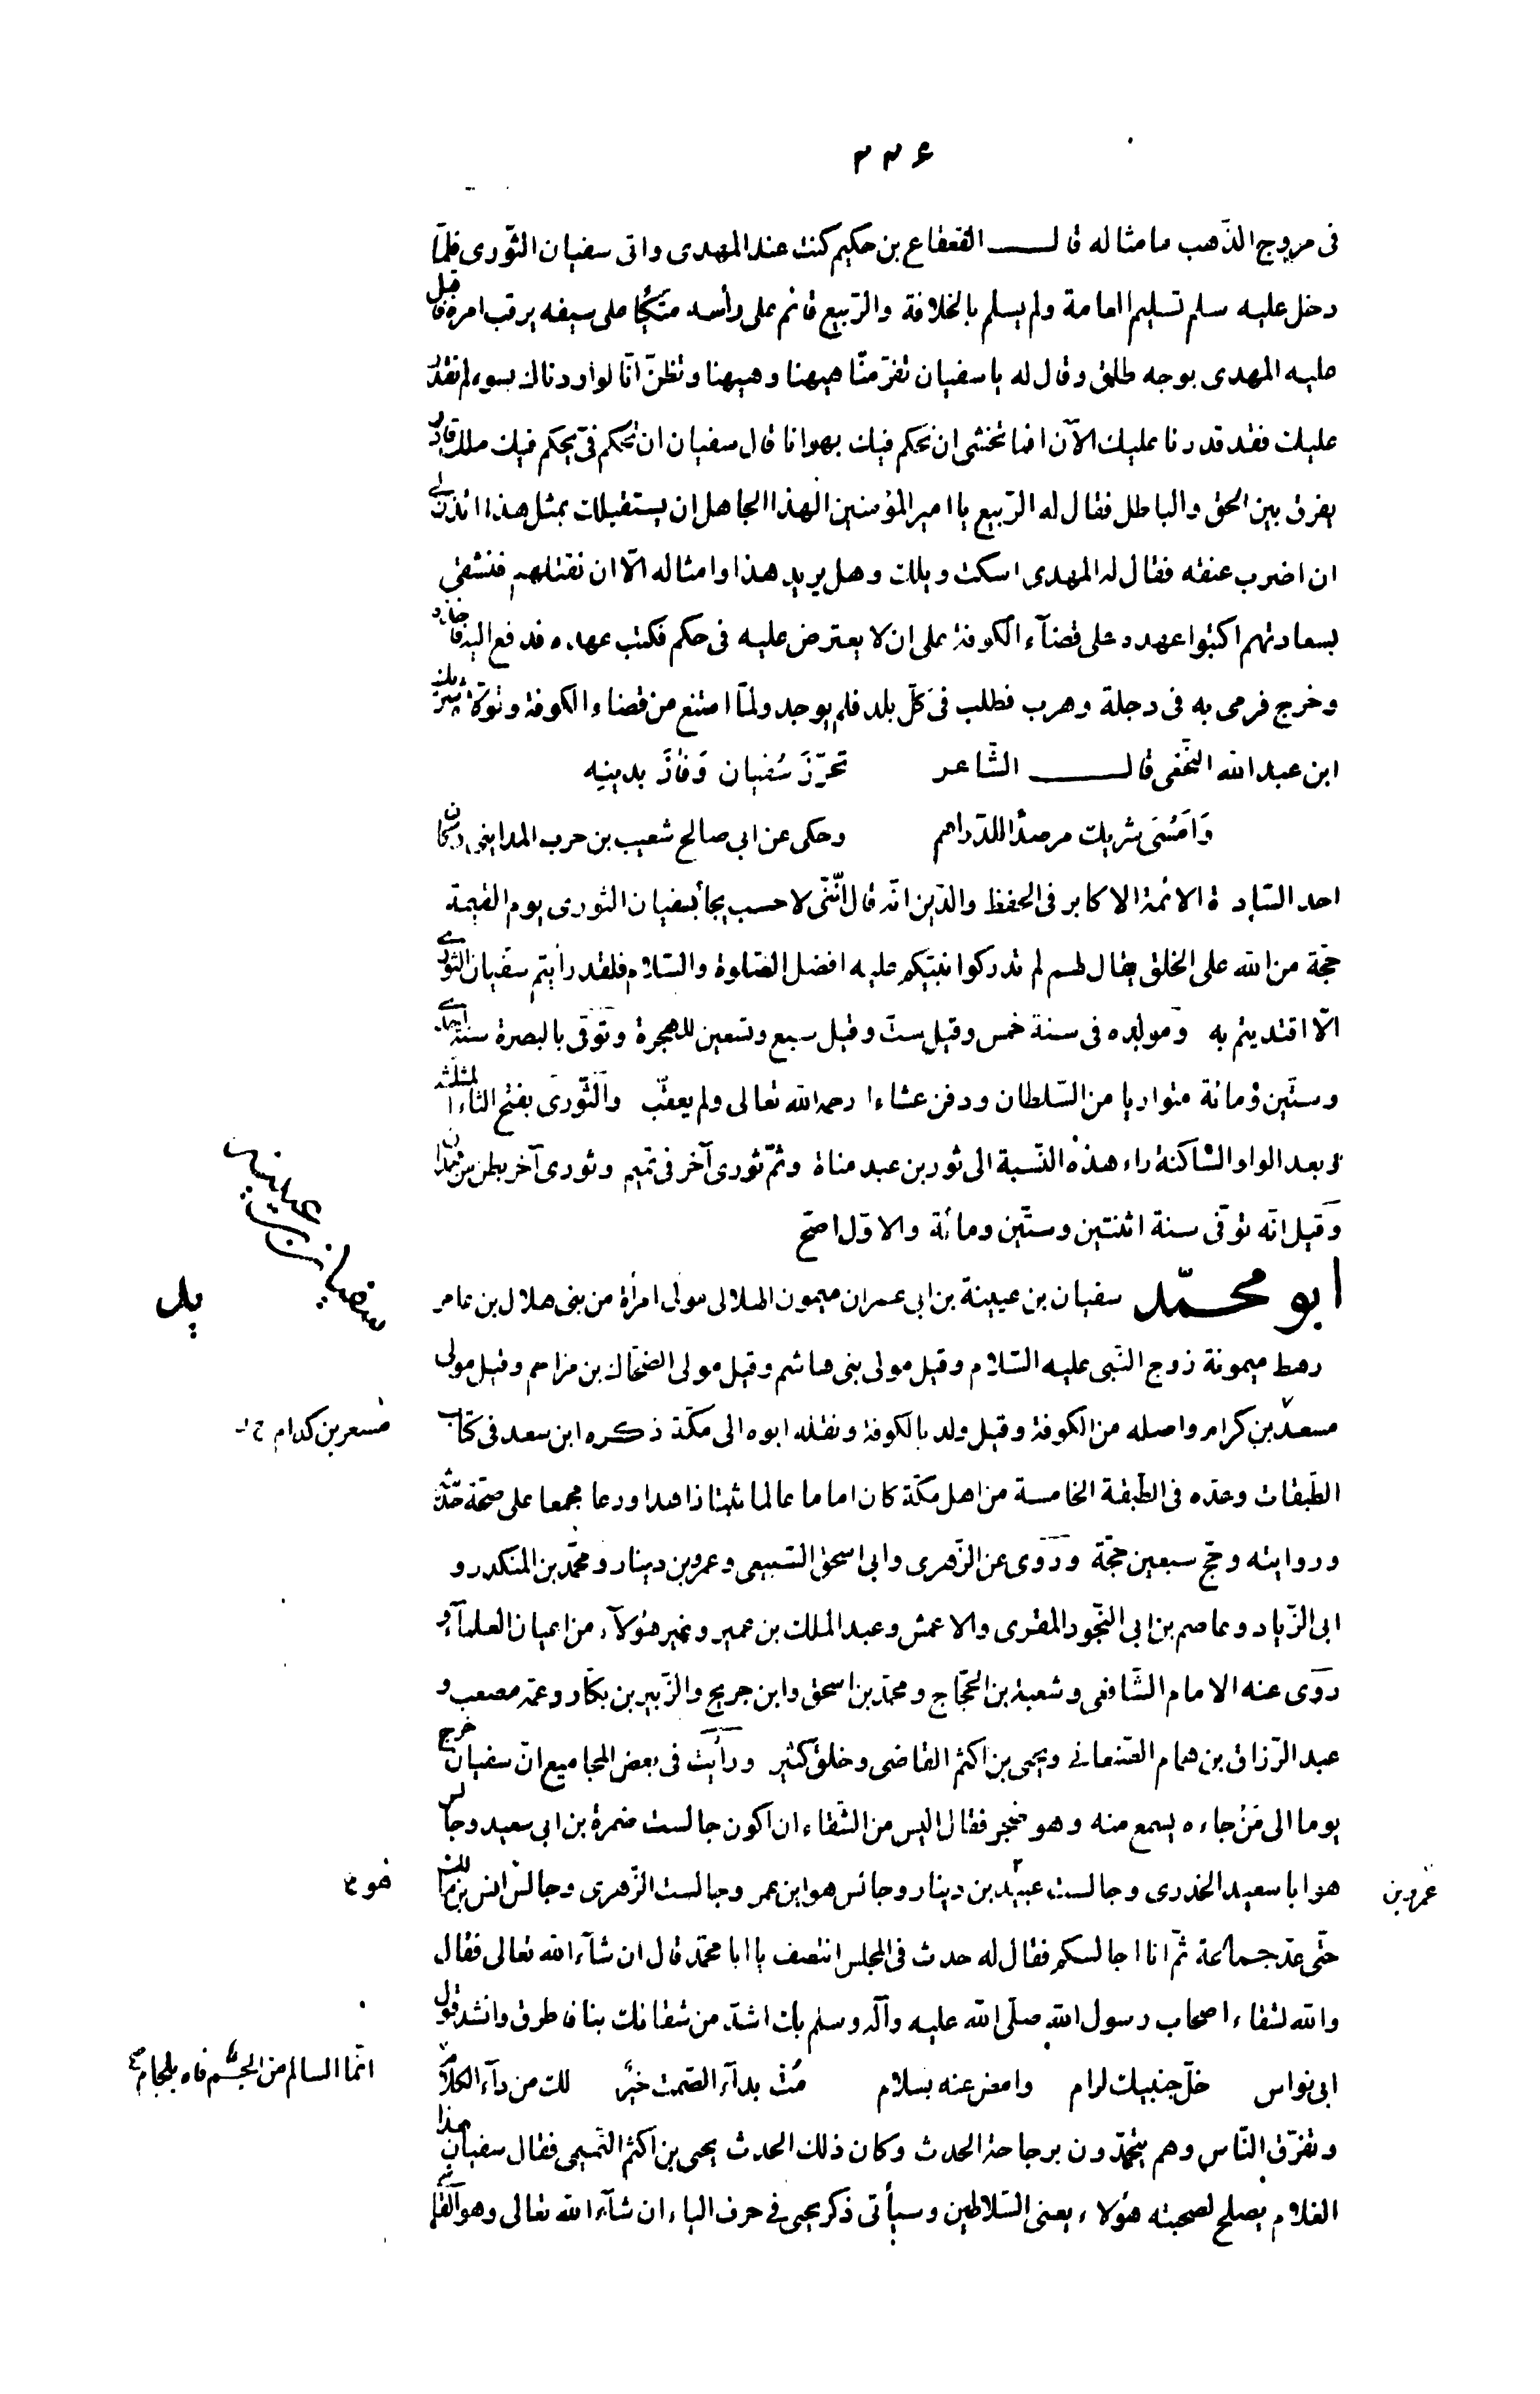 ٢٢٤
فى مروج الذّهب ما مثاله قال القعقاع بن حكيم كنت عند المهدى واتى سفيان الثّورى فلمّا
دخل عليه سلم تسليم العامة ولم يسلم بالخلافة والرّبيع قائم على رأسه متّكئا على سيفه يرقب امره فاقبل
عليه المهدى بوجه طلق وقال له يا سفيان تفرّ منّا هيهنا وهيهنا وتظنّ انّا لو اردناك بسوء لم نقدر
عليك فقد قدرنا عليك الآن افما تخشى ان نحكم فيك بهوانا قال سفيان ان تحكم فىّ يحكم فيك ملك قادر
يفرق بين الحق والباطل فقال له الرّبيع يا امير المؤمنين الهذا الجاهل ان يستقبلك بمثل هذا ائذن لى
ان اضرب عنقه فقال له المهدى اسكت ويلك وهل يريد هذا وامثاله الّا ان نقتلهم فنشقى
بسعادتهم اكتبوا عهده على قضآء الكوفة على ان لا يعترض عليه فى حكم فكتب عهده فدفع اليه فاخذه
وخرج فرمى به فى دجلة وهرب فطلب فى كلّ بلد فلم يوجد ولمّا امتنع من قضاء الكوفة وتولّاه شريك
ابن عبد الله النّخعى قال الشّاعر تحرّزَ سُفيان وَفازَ بدينِه
وَاَمسَى شريك مرصدًا للدّراهم وحكى عن ابى صالح شعيب بن حرب المداينى وكان
احد السّادة الائمة الاكابر فى الحفظ والدّين انّه قال انّنى لاحسب يجآء بسفيان الثورى يوم القيمة
حجّة من الله على الخلق يقال لهم لم تدركوا نبيّكم عليه افضل الصّلوة والسّلام فلقد رأيتم سفيان الثورى
الّا اقتديتم به ومولده فى سنة خمس وقيل ستّ وقيل سبع وتسعين للهجرة وتوفّى بالبصرة سنة احدى
وستّين ومائة متواريا من السّلطان ودفن عشاءا رحمه الله تعالى ولم يعقّب والثّورى بفتح الثاء المثلثة
وبعد الواو السّاكنة راء هذه النّسبة الى ثور بن عبد مناة وثمّ ثورى آخر فى تميم وثورى آخر بطن من همدان
وقيل انّه توفّى سنة اثنتين وستّين ومائة والاوّل اصحّ
سفيان بن عيينة
ابو محمّد سفيان بن عيينة بن ابى عمران ميمون الهلالى مولى امرأة من بنى هلال بن عامر
رهط ميمونة زوج النّبى عليه السّلام وقيل مولى بنى هاشم وقيل مولى الضحّاك بن مزاحم وقيل مولى
مسعد بن كرام واصله من الكوفة وقيل ولد بالكوفة ونقله ابوه الى مكّة ذكره ابن سعد فى كتاب
مسعر بن كدام
الطّبقات وعدّه فى الطّبقة الخامسة من اهل مكّة كان اماما عالما ثبتا زاهدا ورعا مجمعا على صحّة حديثه
وروايته وحجّ سبعين حجّة وروى عن الزّهرى وابى اسحق السّبيعى وعمرو بن دينار ومحمّد بن المنكدر و
ابى الزّناد وعاصم بن ابى النّجود المقرى والاعمش وعبد الملك بن عمير وغير هؤلآء من اعيان العلمآء و
روى عنه الامام الشّافعى وشعبة بن الحجّاج ومحمّد بن اسحق وابن جريج والزّبير بن بكّار وعمّه مصعب و
عبد الرّزاق بن همام الصّنعانى ويحيى بن اكثم القاضى وخلق كثير ورأيت فى بعض المجاميع انّ سفيان خرج
يوما الى مَن جاءه يسمع منه وهو ضجر فقال اليس من الشّقاء ان اكون جالست ضمرة بن ابى سعيد وجالس
هو ابا سعيد الخدرى وجالست عبيد بن دينار وجالس هو ابن عمر وجالست الزّهرى وجالس انس بن مالك
عمرو بن
هو
حتّى عدّ جماعة ثمّ انا اجالسكم فقال له حدث فى المجلس انتصف يا ابا محمّد قال ان شآء الله تعالى فقال
والله لشقاء اصحاب رسول الله صلّى الله عليه وآله وسلم بك اشدّ من شقائك بنا فاطرق وانشد قول
ابى نواس خلّ جنبيك لرام وامض عنه بسلام مُت بدآء الصّمت خيرٌ لك من دآء الكلام
انّما السالم من الجم فاه بلجام
وتفرّق النّاس وهم يتحدّثون برجاحة الحدث وكان ذلك الحدث يحيى بن اكثم التّميمى فقال سفيان هذا
الغلام يصلح لصحبته هؤلاء يعنى السّلاطين وسيأتى ذكر يحيى فى حرف الياء ان شآء الله تعالى وهو